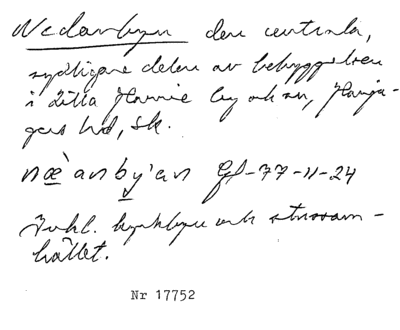 Nedanbyn den centrala,
sydligare delen av bebyggelsen
i Lilla Harrie by och sn, Harja-
gers hd, Sk.
næ`anby'an Gf-77-11-24
Inkl. kyrkbyn och stussam-
hället.
Nr 17752